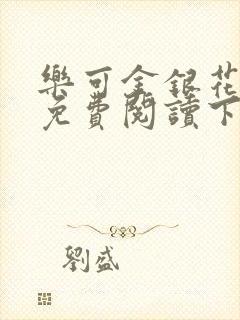 樂可金銀花
免費閱讀下
劉盛